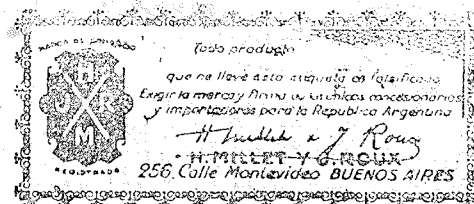 MARCA DE COMERCIO
H
J R
M
REGISTRADA
Todo producto
que no lleve esta etiqueta es falsificado
Exigir la marca y firma de los únicos concesionarios
y importadores para la Republica Argentina
H. MILLET Y J. ROUX
256, Calle Montevideo BUENOS AIRES